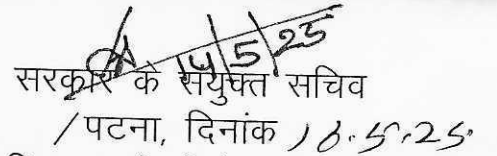 14/5/25
सरकार के संयुक्त सचिव
/पटना, दिनांक 16.5.25.